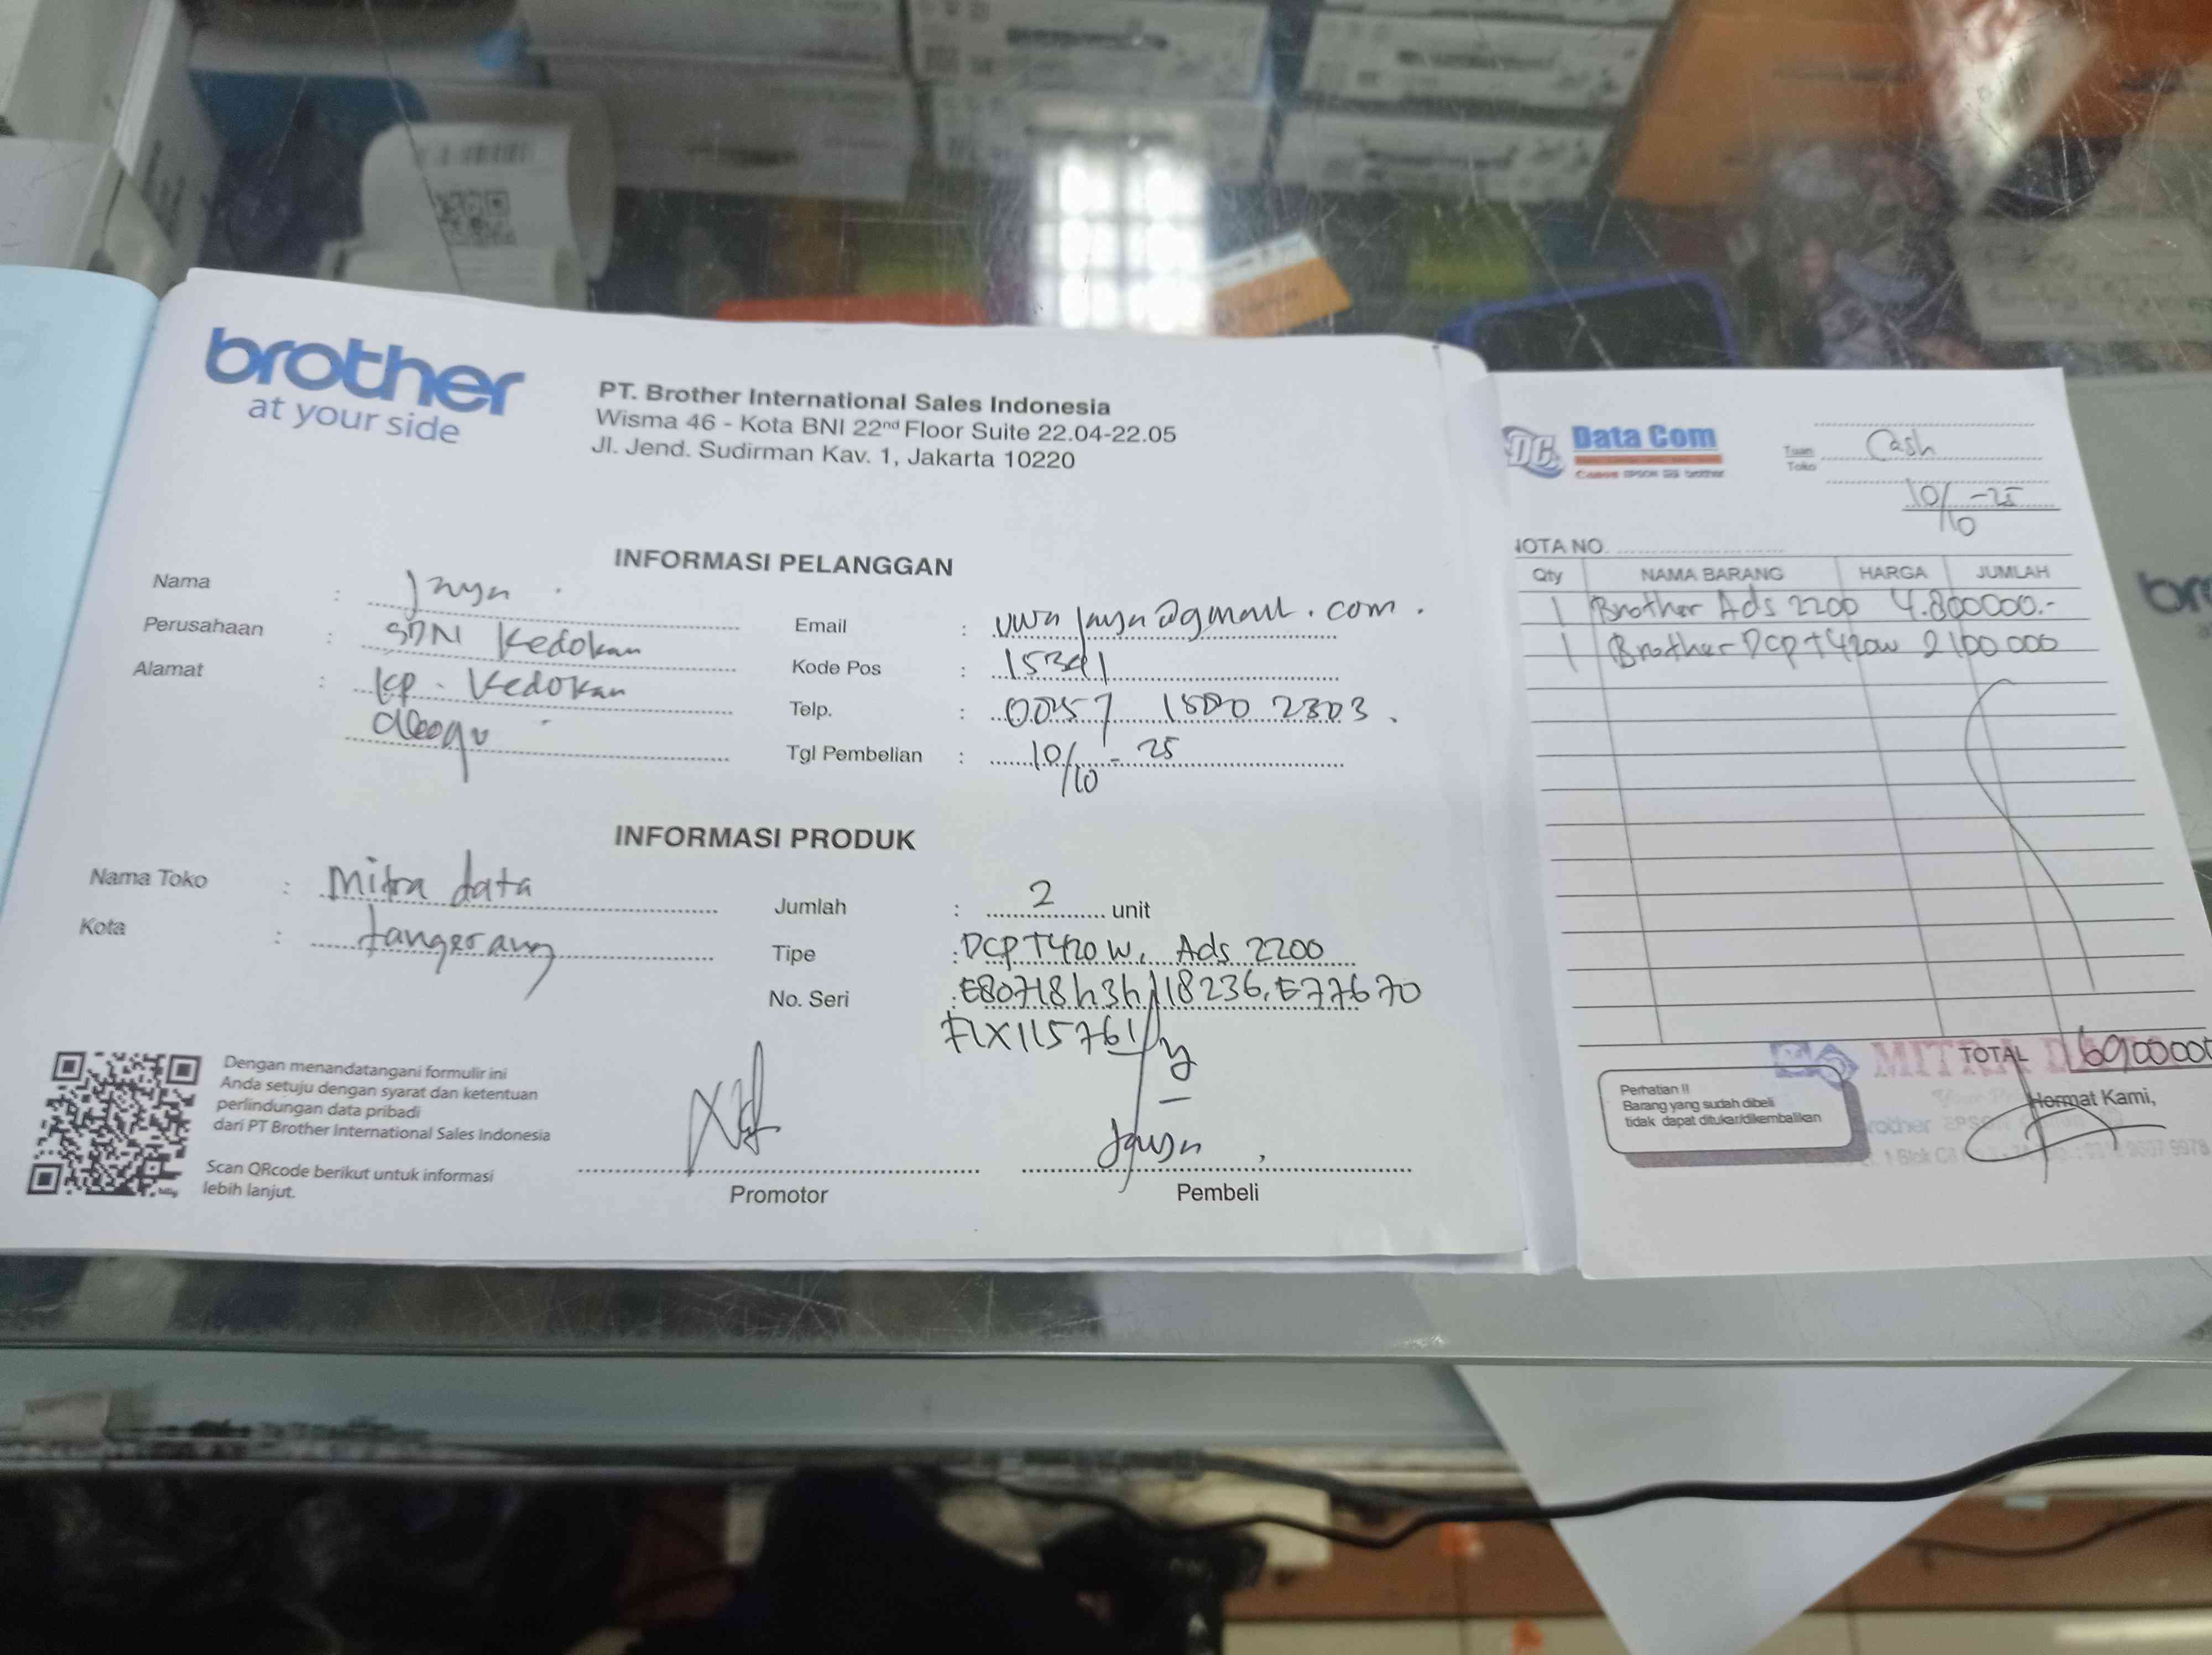 brother
at your side
PT. Brother International Sales Indonesia
Wisma 46 - Kota BNI 22nd Floor Suite 22.04-22.05
Jl. Jend. Sudirman Kav. 1, Jakarta 10220
INFORMASI PELANGGAN
Nama : Jaya
Perusahaan : SDN Kedokan
Alamat : Kp. Kedokan
Email : uwa jaya@gmail.com.
Kode Pos : 15341
Telp. :
Tgl Pembelian : 10/10 - 25
INFORMASI PRODUK
Nama Toko : Mitra data
Kota : tangerang
Jumlah : 2 unit
Tipe : DCP T420W, Ads 2200
No. Seri : E80718h3h118236, E77670
F1X115761
Dengan menandatangani formulir ini
Anda setuju dengan syarat dan ketentuan
perlindungan data pribadi
dari PT Brother International Sales Indonesia
Scan QRcode berikut untuk informasi
lebih lanjut.
Promotor
Jaya
Pembeli
DC Data Com
Canon EPSON brother
Tuan
Toko
Cash
10/10 - 25
NOTA NO.
Qty NAMA BARANG HARGA JUMLAH
1 Brother Ads 2200 4.800000.-
1 Brother DCP T420W 2100 000
TOTAL 6900000
MITRA
Perhatian !!
Barang yang sudah dibeli
tidak dapat ditukar/dikembalikan
Hormat Kami,
bro